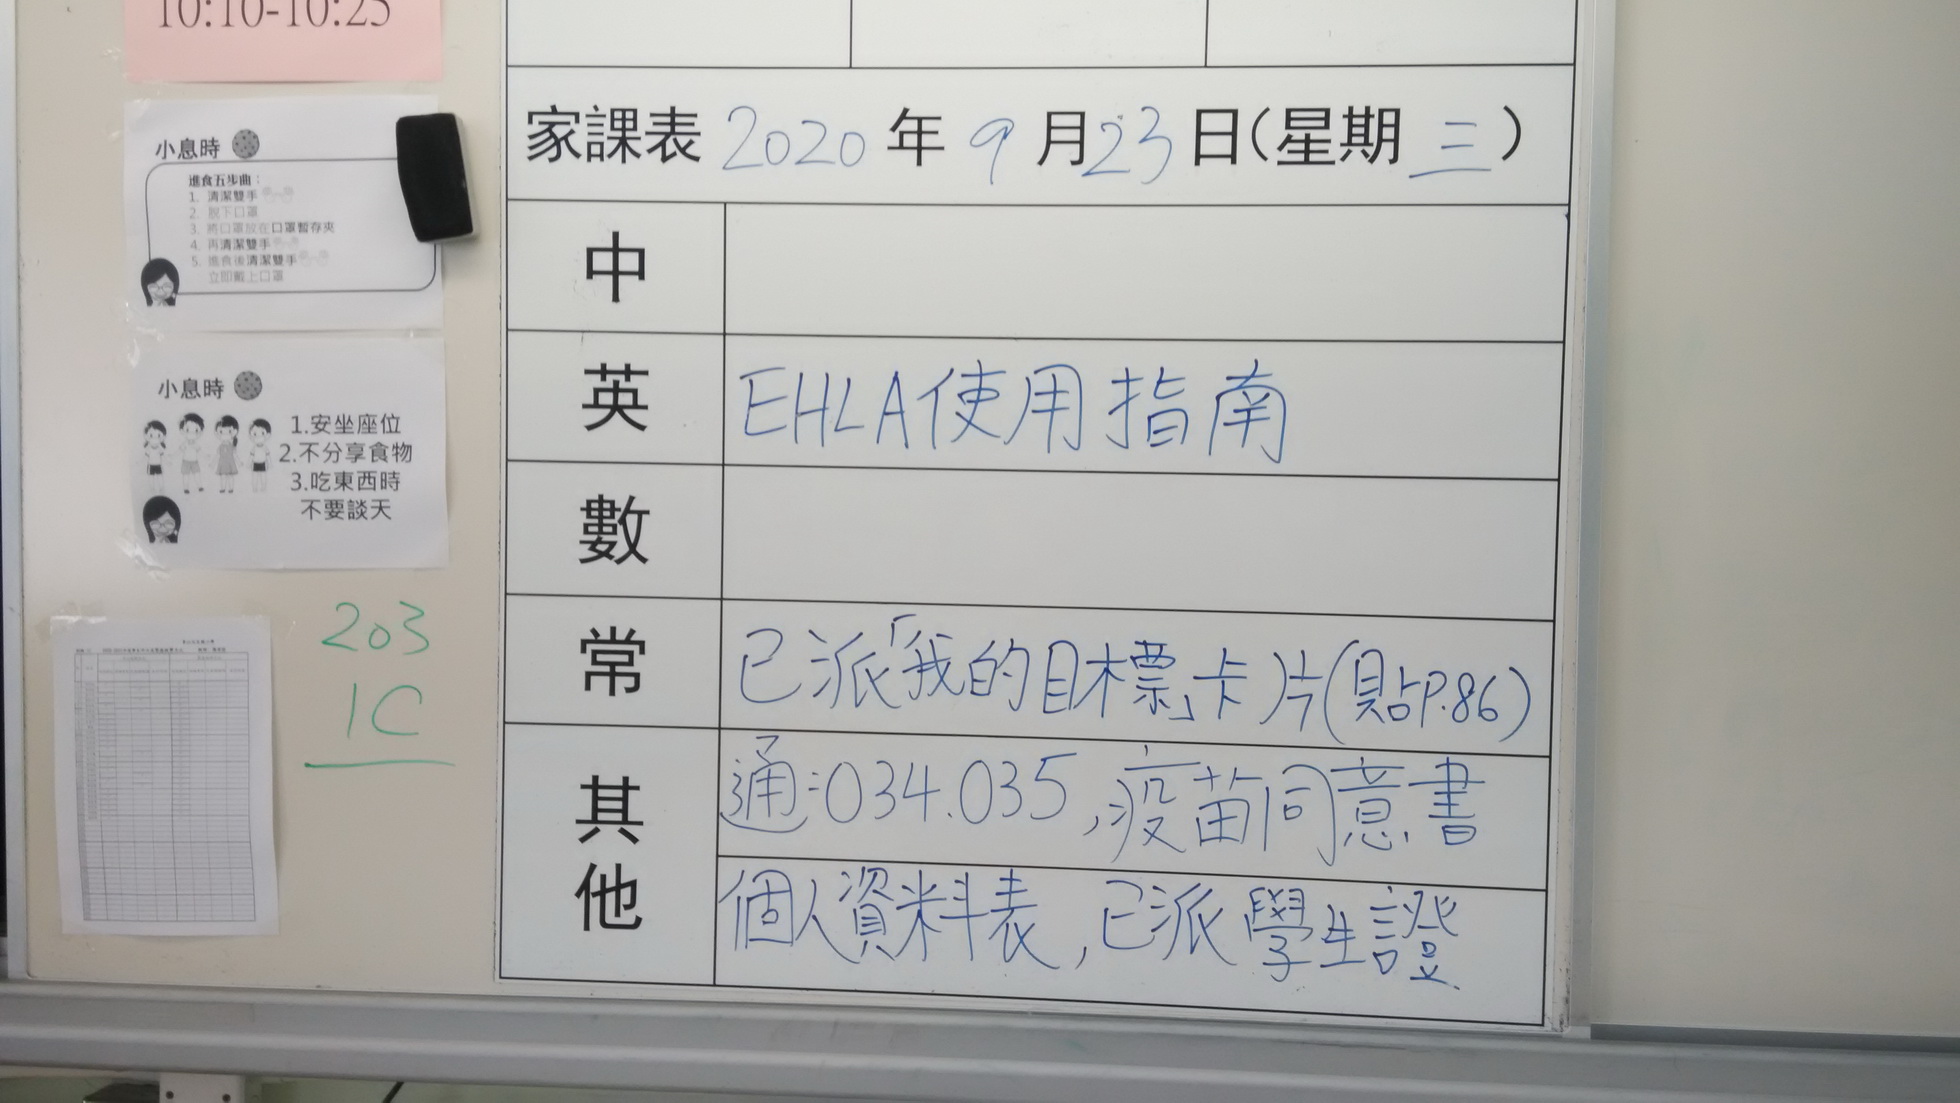 10:10-10:25
小息時
進食五步曲：
1. 清潔雙手
2. 脫下口罩
3. 將口罩放在口罩暫存夾
4. 再清潔雙手
5. 進食後清潔雙手
立即戴上口罩
小息時
1.安坐座位
2.不分享食物
3.吃東西時
不要談天
203
1C
家課表 2020 年 9 月 23 日(星期 三 )
中
英 EHLA使用指南
數
常 已派「我的目標」卡片(貼P.86)
其他
通:034.035,疫苗同意書
個人資料表,已派學生證